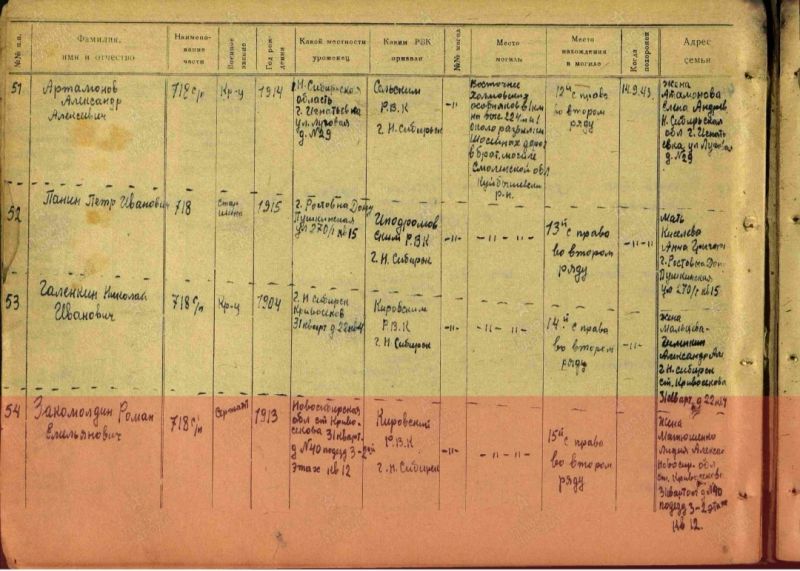 №№ п.п.
Фамилия,
имя и отчество
Наимено-
вание
части
Военное
звание
Год рож-
дения
Какой местности
уроженец
Каким РВК
призван
№№ могил
Место
могилы
Место
нахождения
в могиле
Когда
похоронен
Адрес
семьи
51
Артамонов
Александр
Алексеевич
718 с/п
Кр-ц
1914
Н. Сибирская
область
г. Игнатьевка
ул Луговая
д. №29
Сальским
Р.В.К
г Н. Сибирск
-"-
Восточнее
Холмовши
особняков в 1 км
на выс 224 и 1
около развилки
Шосейных дорог
в брат. могиле
Смоленской обл
Куйбышевски
р-н.
12й с права
во втором
ряду
14.9.43.
Жена
Елена Андрев
Н. Сибирьская
обл г Игнать
евка ул Луговая
д. №29
52
Панин Петр Иванович
718
Стар
шина
1915
г. Ростов на Дону
Пушкинская
ул 270/1 кв 15
Иподромов
ским Р.В.К
г. Н. Сибирск
-"-
- "- "-
13й с право
во втором
ряду
-"-"-
Мать
Киселева
Анна Григорев
г. Ростов на Дон
Пушкинская
ул 270/1 кв 15
53
Галенкин Николай
Иванович
718 с/п
Кр-ц
1904
г. Н Сибирск
Кривосеков
31 кварт. д 22 кв 4
Кировским
Р.В.К
г. Н Сибирск
-"-
- "- "-
14й с права
во втором
ряду
-"-
Жена
Мальцева-
Александра Ал
г Н. сибирск
ст. Кривосекова
31 кварт. д 22 кв 4
54
Закомолдин Роман
Емильянович
718 с/п
Сержант
1913
Новосибирская
обл ст Криво-
секова 31 кварт.
д №40 подезд 3-2ий
этаж кв 12
Кировский
Р.В.К
г. Н Сибирск
-"-
- "- "-
15й с право
во втором
ряду
Жена
Матюшенко
Лидия Алексан
Новосиб. обл
ст. Кривосеково
31 квартал д №40
подезд 3-2 этаж
кв 12.